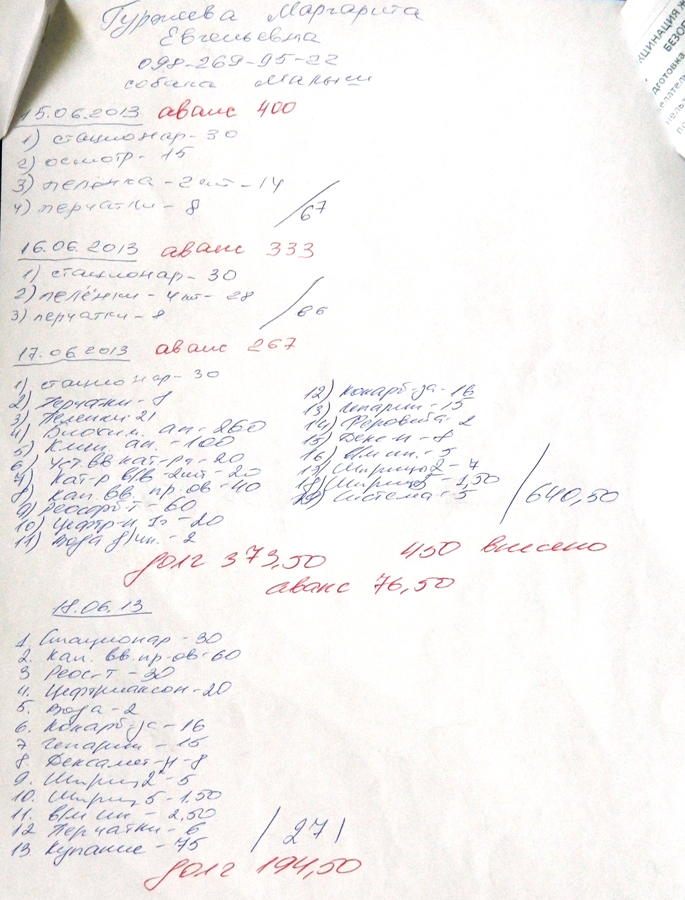 Маргарита
Евгеньевна
098-269-95-22
собака Малыш
15.06.2013 аванс 400
1) стационар - 30
2) осмотр - 15
3) пелёнка - 2 шт - 14
4) перчатки - 8
67
16.06.2013 аванс 333
1) стационар - 30
2) пелёнки - 4 шт - 28
3) перчатки - 8
66
17.06.2013 аванс 267
1) стационар - 30
2) Перчатки - 8
3) Пеленки 21
4) Биохим. ан. - 260
5) Клин. ан. - 100
6) Уст. вв кат-ра - 20
7) Кат-р в/в - 2шт - 20
8) Кап. вв. пр. ов - 40
9) Реосорб-т - 60
10) Цефтр-н 1г - 20
11) Вода д/ин. - 2
12) Кокарб-за - 16
13) Гепарин - 15
14) Феровита - 2
15) Декс-н - 8
16) в/м ин. - 5
17) Шприц 2 - 7
18) Шприц 5 - 1,50
19) Система - 5
640,50
долг 373,50 450 внесено
аванс 76,50
18.06.13
1. Стационар - 30
2. Кап. вв. пр-ов - 60
3 Реос-т - 30
4. Цефтриаксон - 20
5. Вода - 2
6. Кокарб-за - 16
7 Гепарин - 15
8. Дексамет-н - 8
9. Шприц 2 - 5
10. Шприц 5 - 1.50
11. в/м ин - 2,50
12 Перчатки - 6
13. Купание - 75
271
долг 194,50